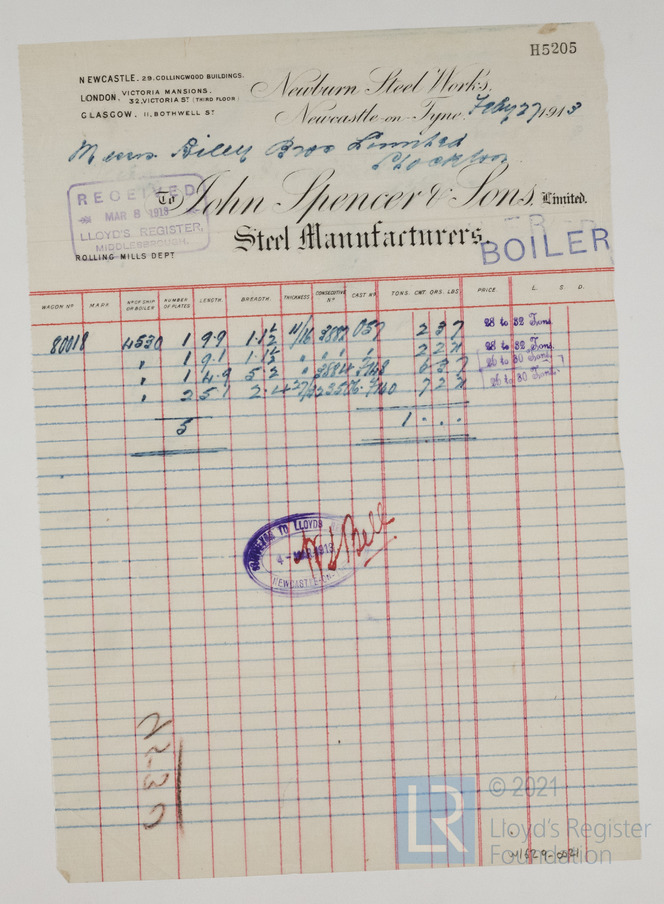 H5205
NEWCASTLE. 29. COLLINGWOOD BUILDINGS.
LONDON. VICTORIA MANSIONS. 32, VICTORIA ST (THIRD FLOOR)
GLASGOW. 11, BOTHWELL ST
Newburn Steel Works.
Newcastle-on-Tyne, Feby 27 1913
Messrs Riley Bros Limited
Stockton
To John Spencer & Sons, Limited.
Steel Manufacturers.
RECEIVED
MAR 8 1913
LLOYD'S REGISTER,
MIDDLESBROUGH.
BOILER
ROLLING MILLS DEPT
WAGON NO MARK NO OF SHIP OR BOILER NUMBER OF PLATES LENGTH. BREADTH. THICKNESS CONSECUTIVE NO CAST NO TONS. CWT. QRS. LBS. PRICE. L. S. D.
80018 4530 1 9.9 1.1½ 11/16 057 2 3 7 28 to 32 Tons.
" 1 9.1 1.1½ " " " 2 2 28 to 32 Tons.
" 1 4.9 5.2 " 6 3 7 26 to 30 Tons.
" 2 5.1 2.4 7 2 26 to 30 Tons.
5 1 . . .
TO LLOYDS
4 - MAR 1913
NEWCASTLE-ON-
Bell
© 2021
LR
Lloyd's Register
Foundation